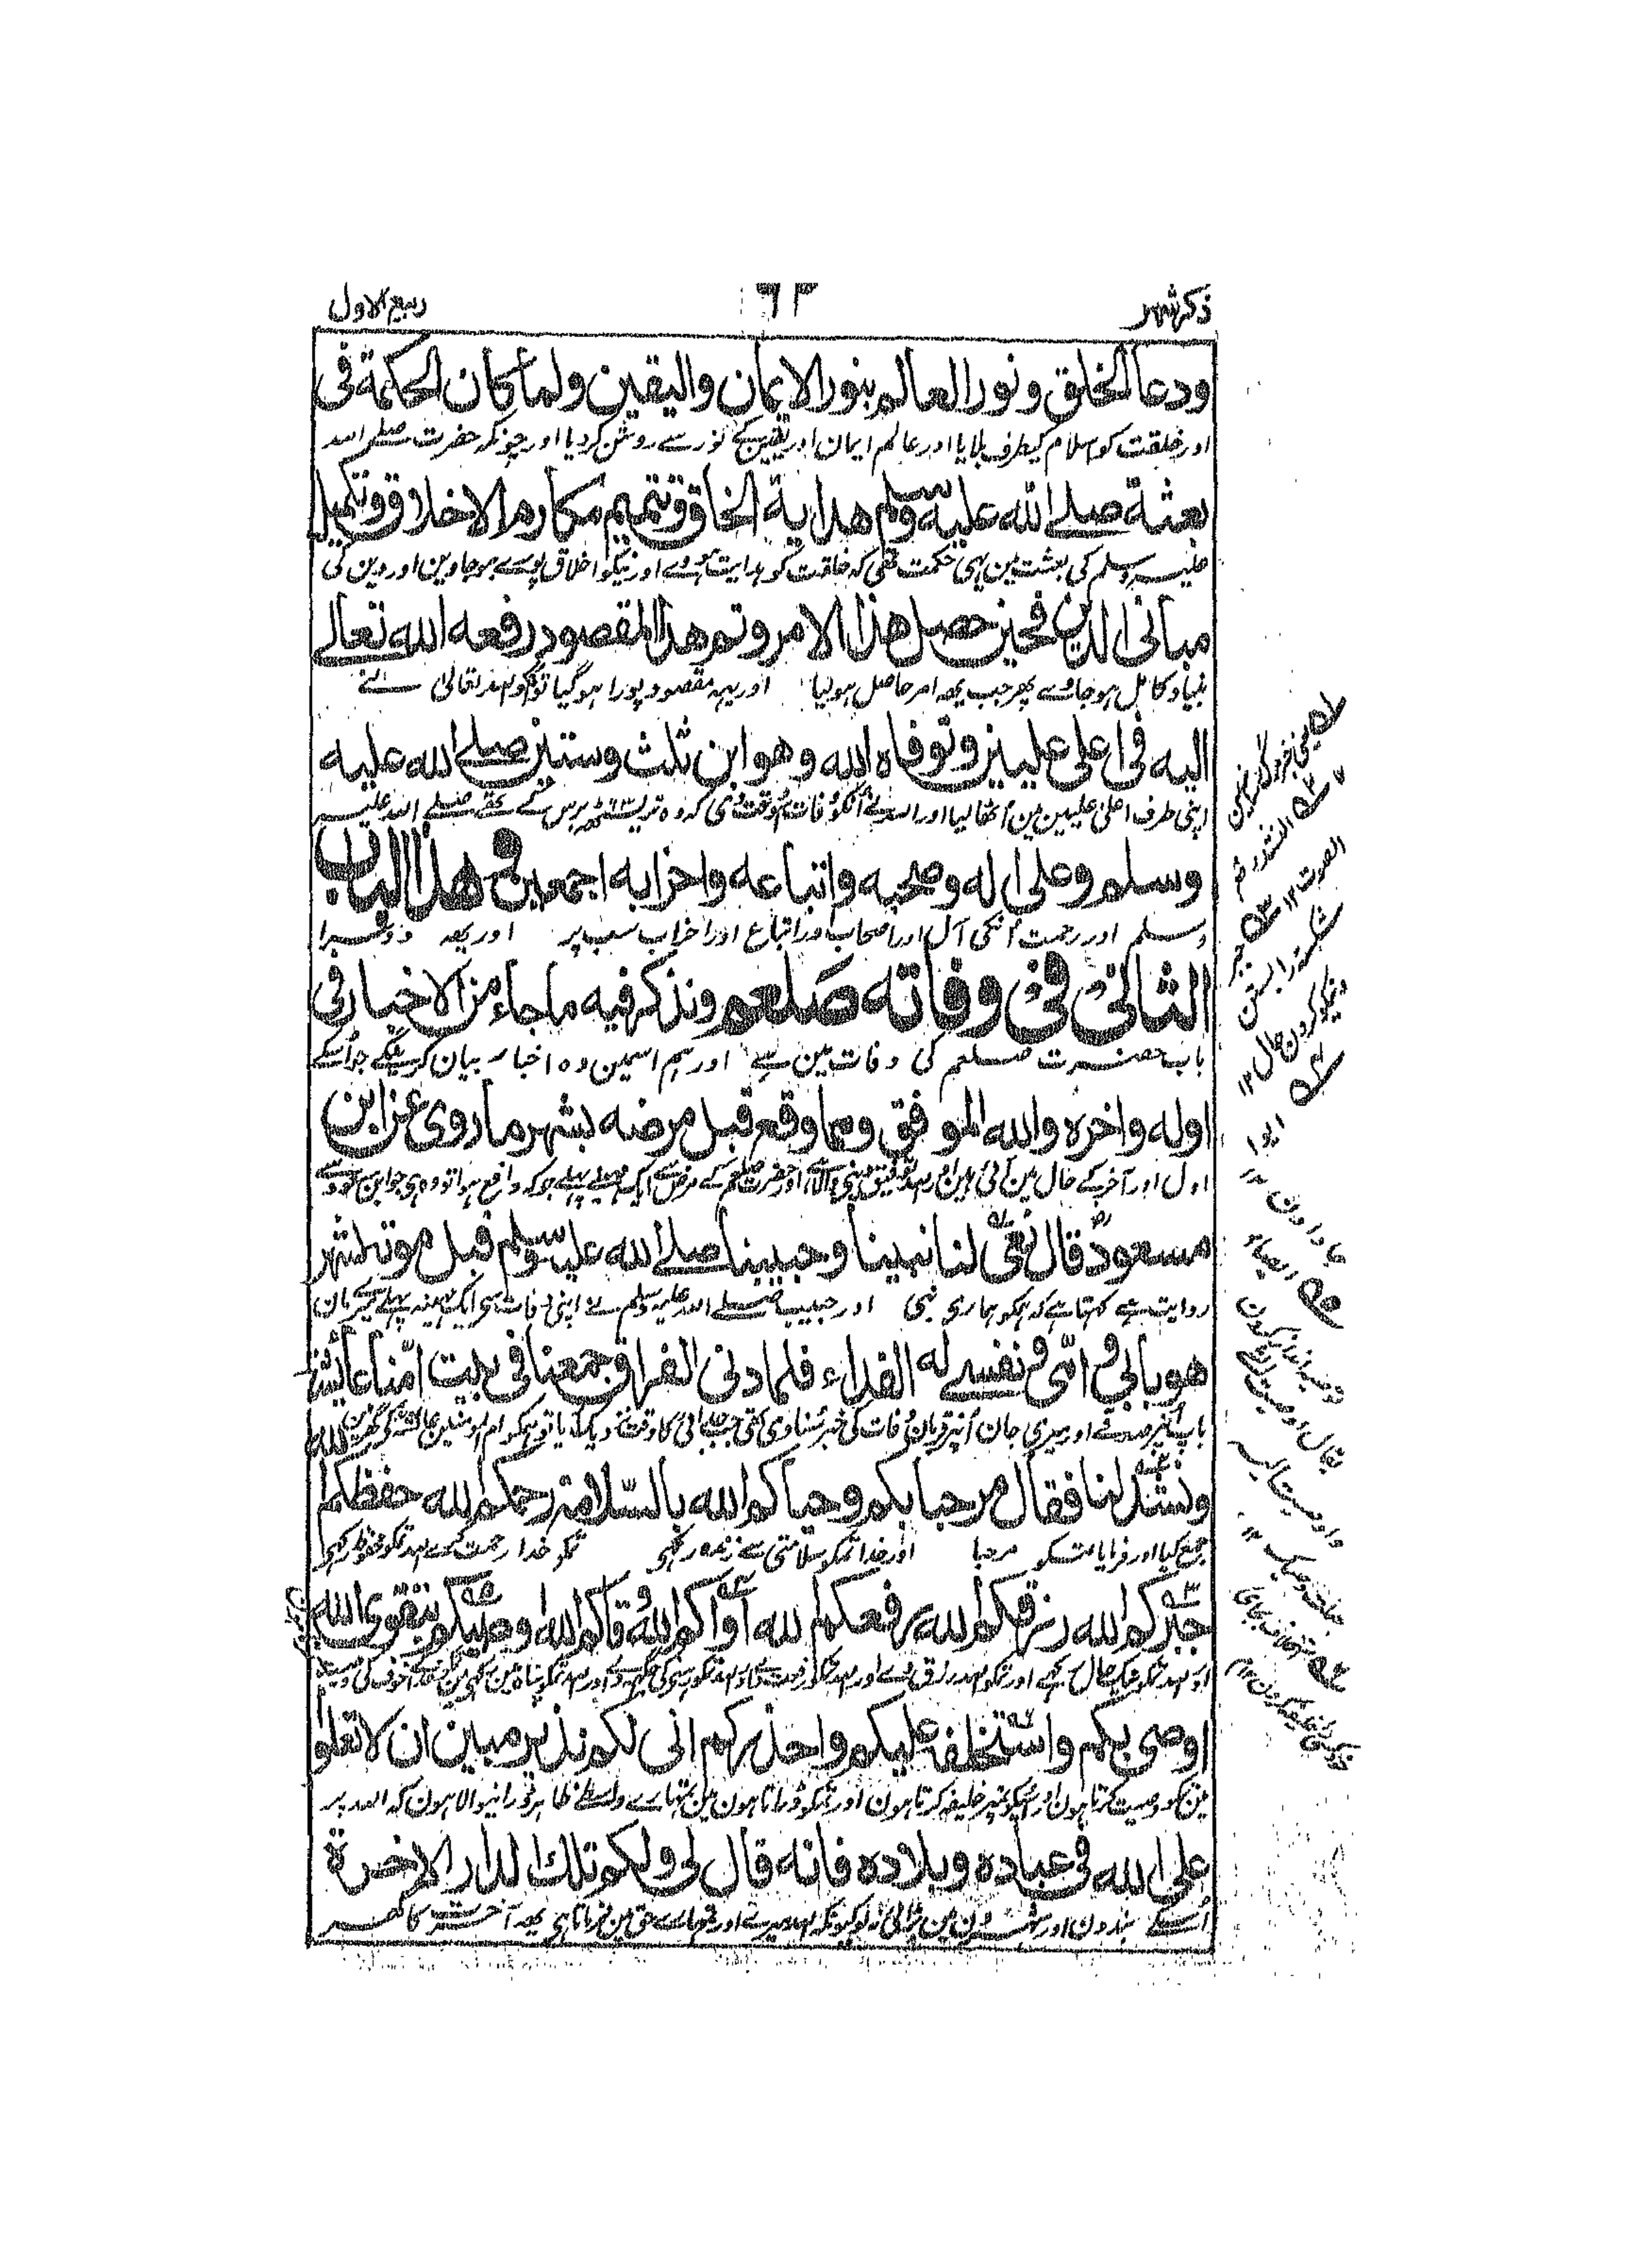 ذكر شهر ٦٣ ربيع الاول
ودعا الخلق ونور العالم بنور الايمان واليقين ولما كان الحكمة فى
اور خلقت کو اسلام کیطرف بلایا اور عالم ایمان اور یقین کے نور سے روشن کر دیا اور چونکہ حضرت صلے اللہ
بعثة صلے الله عليه وسلم هداية الخلق وتتميم مكارم الاخلاق وتكميل
علیہ وسلم کی بعثت مین یہی حکمت تھی کہ خلقت کو ہدایت ہووے اور نیکو اخلاق پورے ہو جاوین اور دین کی
مبانى الدين فحين حصل هذا الامر وتم هذا المقصود رفعه الله تعالے
بنیاد کامل ہو جاوے پھر جب یہہ امر حاصل ہو لیا اور یہہ مقصود پورا ہو گیا تو انکو اللہ تعالیٰ نے
اليه فى اعلى عليين وتوفاه الله وهو ابن ثلث وستين صلے الله عليه
اپنی طرف اعلیٰ علیین مین اُٹھا لیا اور اللہ نے اُنکو وفات اُسوقت دی کہ وہ تریسٹھ برس کے تھے صلے اللہ علیہ
وسلم وعلى اله وصحبه واتباعه واحزابه اجمعين وفى هذا الباب
وسلم اور رحمت اُنکی آل اور اصحاب اور اتباع اور احزاب سب پر اور یہہ دوسرا
الثانى فى وفاته صلعم ونذكر فيه ما جاء من الاخبار فى
باب حضرت صلعم کی وفات مین ہے اور ہم اسمین وہ اخبار بیان کرینگے جو اُسکے
اوله واخره والله الموفق ومما وقع قبل مرضه بشهر ما روى عن ابن
اول اور آخر کے حال مین آئی ہین اور اللہ توفیق دینے والا ہے اور حضرت صلعم کے مرض سے ایک مہینے پہلے جو کہ واقع ہوا تو وہ ہی جو ابن مسعود سے
مسعود قال نعى لنا نبينا وحبيبنا صلے الله عليه وسلم قبل موته بشهر
روایت ہے کہتا ہے کہ ہمکو ہماری نبی اور حبیب صلے اللہ علیہ وسلم نے اپنی وفات سی ایک مہینہ پہلے میرے مان
هو بابى وامى ونفسے له الفداء فلما دنى الفراق جمعنا فى بيت امنا عائشة
باپ اُنپر صدقے اور میری جان اُنپر قربان وفات کی خبر سُنا دی تھی جب جدائی کا وقت نزدیک آیا تو ہمکو ام المومنین عائشہ کے گھر مین
وشدد لنا فقال مرحبا بكم وحياكم الله بالسلامة رحمكم الله حفظكم الله
جمع کیا اور فرمایا تمکو مرحبا اور خدا تمکو سلامتی سے زندہ رکھی تمکو خدا رحمت کرے اللہ تمکو محفوظ رکھی
جبركم الله رزقكم الله رفعكم الله آواكم الله وقاكم الله اوصيكم بتقوى الله
اوصى بكم واستخلفه عليكم واحذركم انى لكم نذير مبين ان لا تعلوا
مین تمکو وصیت کرتا ہون اور اُسیکو تمپر خلیفہ کرتا ہون اور تمکو ڈراتا ہون مین تمہارے واسطے ظاہر ڈرانیوالا ہون کہ اللہ پر
على الله فى عباده وبلاده فانه قال لى ولكم تلك الدار الاخرة
اُسکے بندون اور شہرون مین بڑائی نہ لو کیونکہ اللہ میرے اور تمہارے حق مین فرماتا ہی یہہ آخرت کا گھر